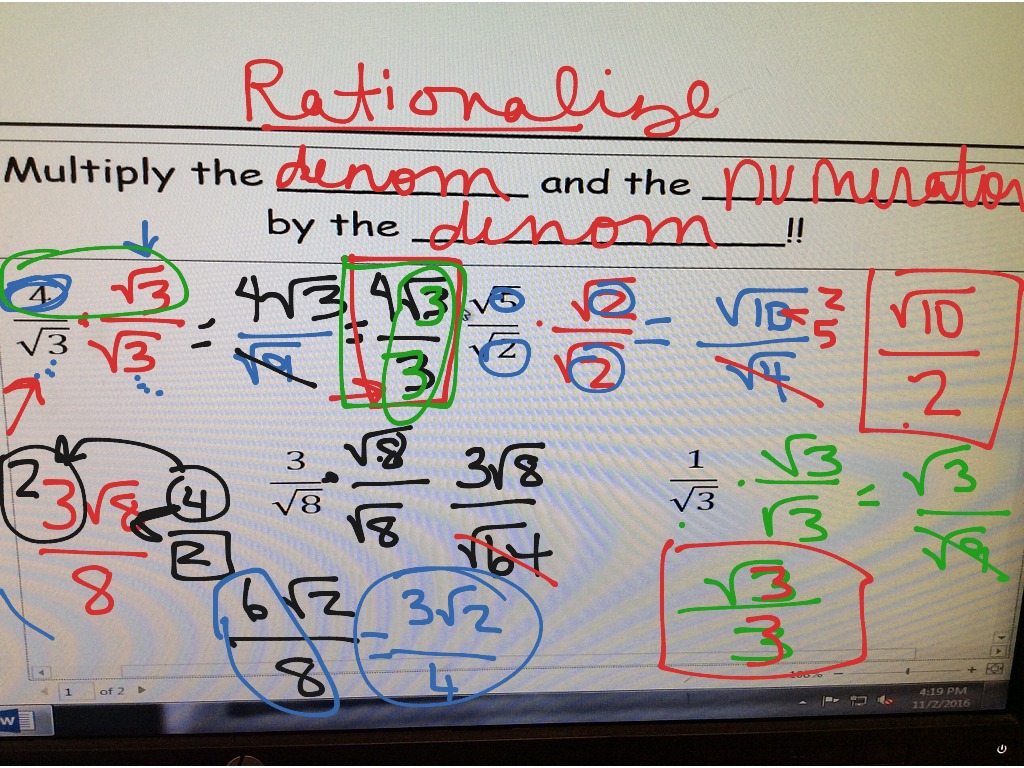 Rationalize
Multiply the denom and the numerator
by the denom !!
4/√3 · √3/√3 = 4√3/√9 = 4√3/3
√5/√2 · √2/√2 = √10/√4 2 5 √10/2
3/√8 · √8/√8 3√8/√64
2 3√8/8 4 2
6√2/8 = 3√2/4
1/√3 · √3/√3 = √3/√9
√3/3
1 of 2
100% − +
W
4:19 PM
11/2/2016